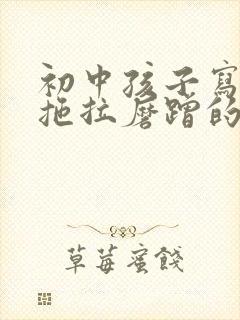 初中孩子寫
拖拉磨蹭的
草莓蜜餞